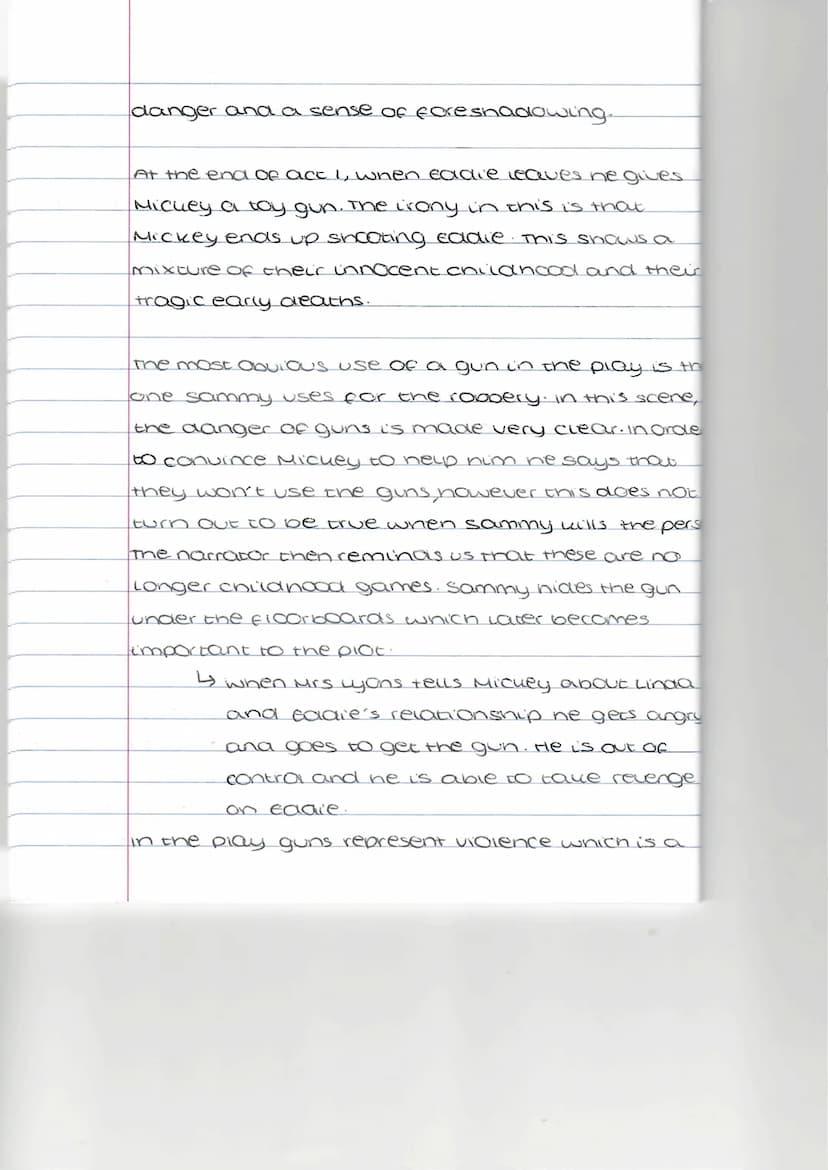 danger and a sense of foreshadowing.
At the end of act 1, when Eddie leaves he gives
Mickey a toy gun. The irony in this is that
Mickey ends up shooting Eddie. This shows a
mixture of their innocent childhood and their
tragic early deaths.
The most obvious use of a gun in the play is th
one Sammy uses for the robbery. In this scene,
the danger of guns is made very clear. In orde
to convince Mickey to help him he says that
they won't use the guns, however this does not
turn out to be true when Sammy kills the pers
The narrator then reminds us that these are no
longer childhood games. Sammy hides the gun
under the floorboards which later becomes
important to the plot.
↳ when Mrs Lyons tells Mickey about Linda
and Eddie's relationship he gets angry
and goes to get the gun. He is out of
control and he is able to take revenge
on Eddie.
In the play guns represent violence which is a